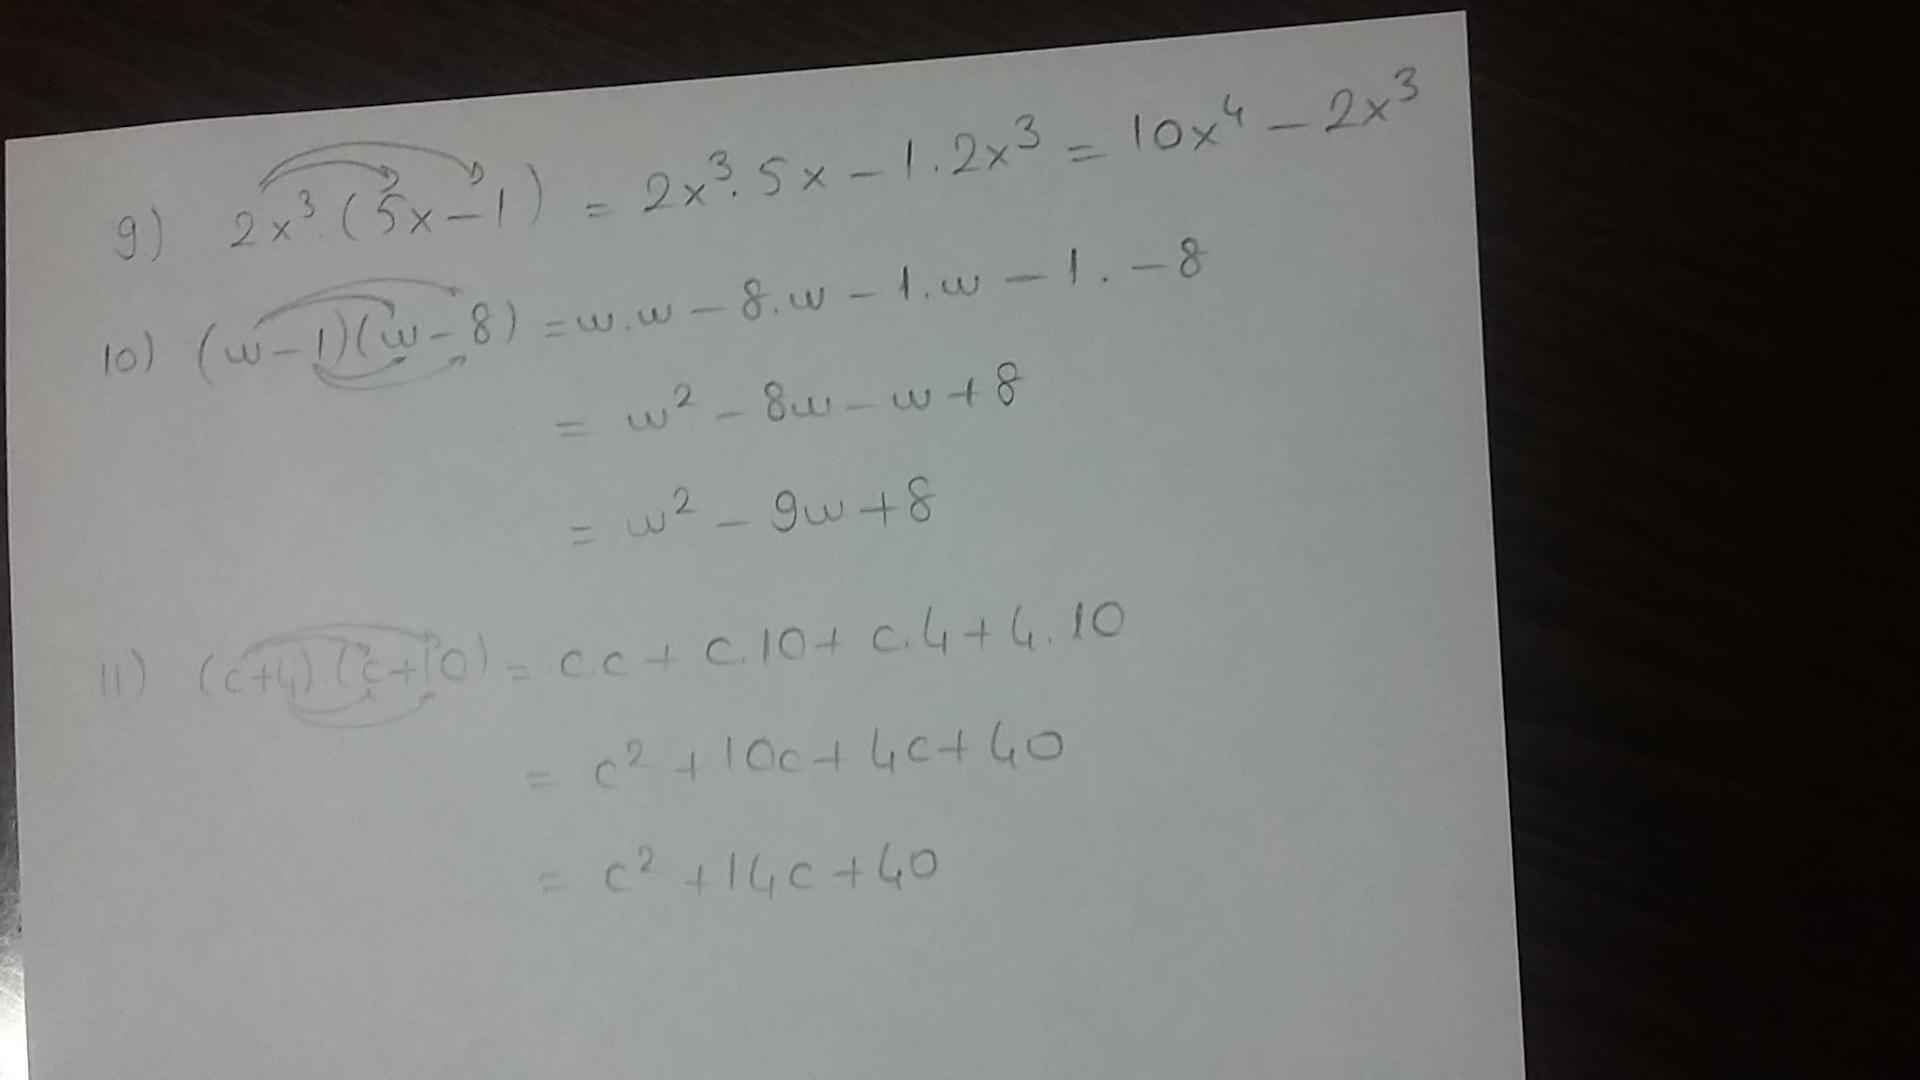 9.) 2x³.(5x-1) = 2x³.5x - 1.2x³ = 10x⁴ - 2x³
10) (w-1)(w-8) = w.w - 8.w - 1.w - 1. -8
= w² - 8w - w + 8
= w² - 9w + 8
11) (c+4)(c+10) = c.c + c.10 + c.4 + 4.10
= c² + 10c + 4c + 40
= c² + 14c + 40